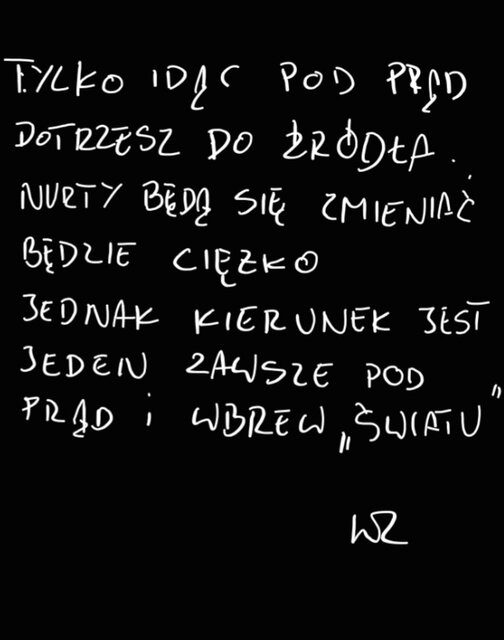 TYLKO IDĄC POD PRĄD
DOTRZESZ DO ŹRÓDŁA.
NURTY BĘDĄ SIĘ ZMIENIAĆ
BĘDZIE CIĘŻKO
JEDNAK KIERUNEK JEST
JEDEN ZAWSZE POD
PRĄD i WBREW „ŚWIATU”
WZ